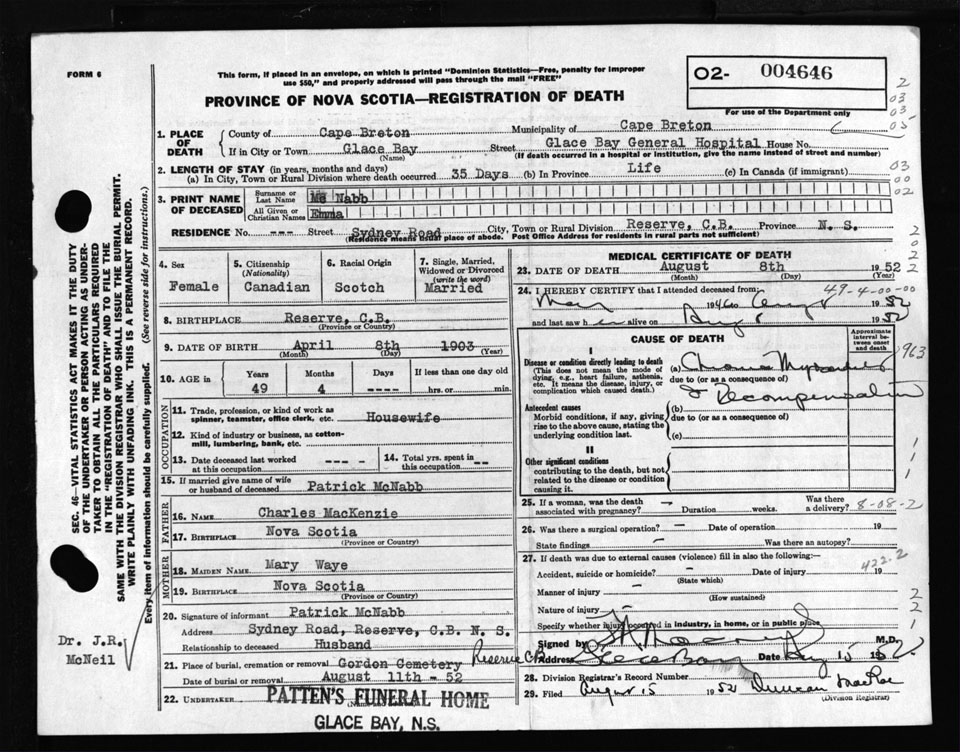 FORM 6
This form, if placed in an envelope, on which is printed "Dominion Statistics—Free, penalty for improper
use $50," and properly addressed will pass through the mail "FREE"
PROVINCE OF NOVA SCOTIA—REGISTRATION OF DEATH
O2- 004646
For use of the Department only
1. PLACE OF DEATH
County of Cape Breton Municipality of Cape Breton
If in City or Town Glace Bay Street Glace Bay General Hospital House No.
(Name) (If death occurred in a hospital or institution, give the name instead of street and number)
2. LENGTH OF STAY (in years, months and days)
(a) In City, Town or Rural Division where death occurred 35 Days (b) In Province Life (c) In Canada (if immigrant)
3. PRINT NAME OF DECEASED
Surname or Last Name Mc Nabb
All Given or Christian Names Emma
RESIDENCE No. --- Street Sydney Road City, Town or Rural Division Reserve, C.B. Province N. S.
(Residence means usual place of abode. Post Office Address for residents in rural parts not sufficient)
4. Sex
Female
5. Citizenship
(Nationality)
Canadian
6. Racial Origin
Scotch
7. Single, Married,
Widowed or Divorced
(write the word)
Married
8. BIRTHPLACE Reserve, C.B.
(Province or Country)
9. DATE OF BIRTH April 8th 1903
(Month) (Day) (Year)
10. AGE in
Years Months Days If less than one day old
49 4 ---- hrs. or min.
OCCUPATION
11. Trade, profession, or kind of work as
spinner, teamster, office clerk, etc. Housewife
12. Kind of industry or business, as cotton-
mill, lumbering, bank, etc.
13. Date deceased last worked
at this occupation --- -
14. Total yrs. spent in
this occupation --
15. If married give name of wife
or husband of deceased Patrick McNabb
FATHER
16. NAME Charles MacKenzie
17. BIRTHPLACE Nova Scotia
(Province or Country)
MOTHER
18. MAIDEN NAME Mary Waye
19. BIRTHPLACE Nova Scotia
(Province or Country)
20. Signature of informant Patrick McNabb
Address Sydney Road, Reserve, C.B. N. S.
Relationship to deceased Husband
21. Place of burial, cremation or removal Gordon Cemetery Reserve CB
Date of burial or removal August 11th - 52
22. UNDERTAKER PATTEN'S FUNERAL HOME
GLACE BAY, N.S.
MEDICAL CERTIFICATE OF DEATH
23. DATE OF DEATH August 8th 1952
(Month) (Day) (Year)
24. I HEREBY CERTIFY that I attended deceased from: 49-4-00-00
May 1946 to Aug 8 1952
and last saw her alive on Aug 8 1952
CAUSE OF DEATH
Approximate
interval be-
tween onset
and death
I
Disease or condition directly leading to death
(This does not mean the mode of
dying, e.g., heart failure, asthenia,
etc. It means the disease, injury, or
complication which caused death.)
(a) Chronic
due to (or as a consequence of)
Decompensation
Antecedent causes
Morbid conditions, if any, giving
rise to the above cause, stating the
underlying condition last.
(b)
due to (or as a consequence of)
(c)
II
Other significant conditions
contributing to the death, but not
related to the disease or condition
causing it.
25. If a woman, was the death
associated with pregnancy? — Duration weeks. Was there
a delivery? 8-08-2
26. Was there a surgical operation? — Date of operation 19
State findings — Was there an autopsy?
27. If death was due to external causes (violence) fill in also the following:—
422.2
Accident, suicide or homicide? — Date of injury 19
(State which)
Manner of injury —
(How sustained)
Nature of injury
Specify whether injury occurred in industry, in home, or in public place
Signed by M.D.
Address Glace Bay Date Aug 15 1952
28. Division Registrar's Record Number
29. Filed August 15 1952 Duncan MacRae
(Division Registrar)
SEC. 46—VITAL STATISTICS ACT MAKES IT THE DUTY
OF THE UNDERTAKER OR PERSON ACTING AS UNDER-
TAKER TO OBTAIN ALL THE PARTICULARS REQUIRED
IN THE "REGISTRATION OF DEATH" AND TO FILE THE
SAME WITH THE DIVISION REGISTRAR WHO SHALL ISSUE THE BURIAL PERMIT.
WRITE PLAINLY WITH UNFADING INK. THIS IS A PERMANENT RECORD.
Every item of information should be carefully supplied. (See reverse side for instructions.)
Dr. J.R.
McNeil
2
03
03
05
03
00
02
2
0
2
2
963
1
1
1
2
2
1